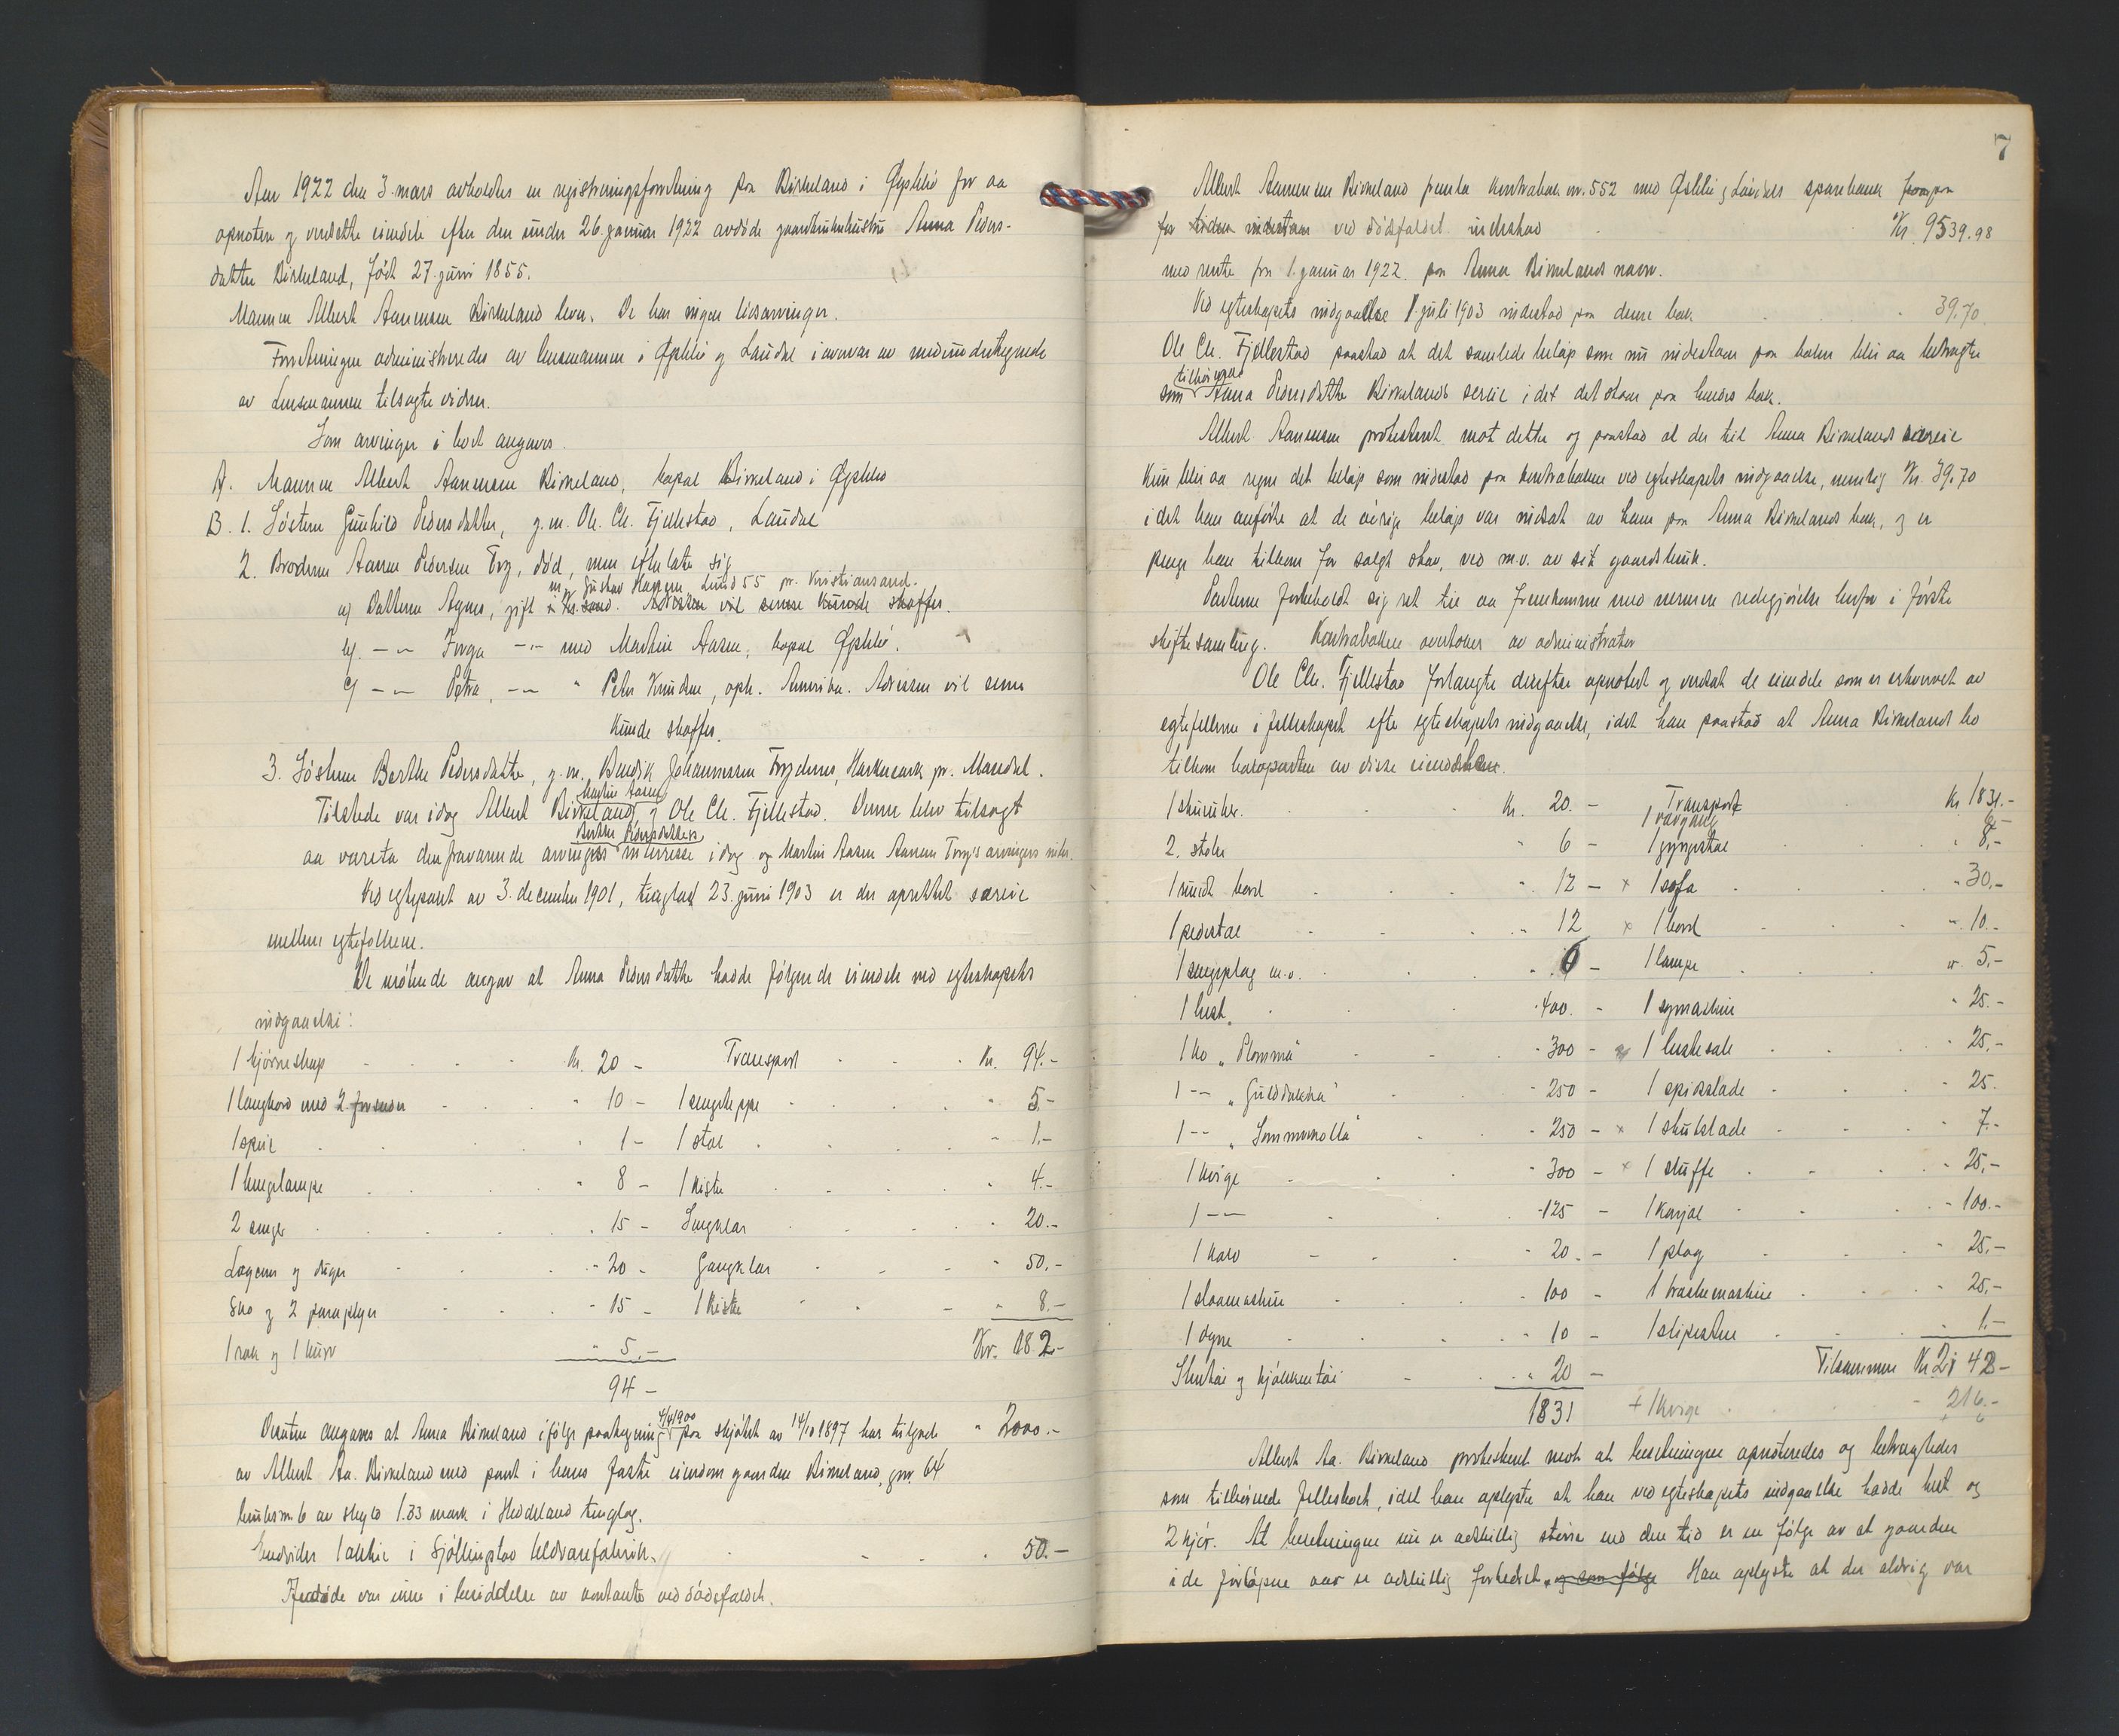 Aar 1922 den 3. mars avholdtes en registreringsforretning paa Birkeland i Øyslebø for aa
opnotere og verdsette eiendele efter den under 26. januar 1922 avdøde gaardbrukerhustru Anna Peders-
datter Birkeland, født 27. juni 1855.
Mannen Albert Aanensen Birkeland lever. De har ingen livsarvinger.
Forretningen administreredes av lensmannen i Øyslebø og Laudal i overvær av medundertegnede
av Lensmannen tilsagte vidner.
Som arvinger i boet angaves.
A. Mannen Albert Aanensen Birkeland, bopæl Birkeland i Øyslebø
B. 1. Søsteren Gunhild Pedersdatter, g.m. Ole Chr. Fjellestad, Laudal
2. Broderen Aanen Pedersen Fry, død, men efterlater sig
m. Gustav Hansen Lund 55 pr. Kristiansand.
a) Datteren Agnes, gift i Kr.sand. Adressen vil senere kunde skaffes.
b) -"- Inga -"- med Martin Aasen, bopæl Øyslebø.
c) -"- Petra, -"- " Peder Knudsen, oph. Amerika. Adressen vil senere
kunde skaffes.
3. Søsteren Berthe Pedersdatter, g.m. Bendik Johannessen Frydenes, Harkmark pr. Mandal.
Martin Aasen
Tilstede var idag Albert Birkeland, og Ole Chr. Fjellestad. Denne blev tilsagt
Berthe Pedersdatters
aa vareta den fraværende arvinges interesse idag og Martin Aasen Aanen Fry's arvingers inter.
Ved egtepakt av 3. december 1901, tinglæst 23. juni 1903 er der oprettet særeie
mellem egtefolkene.
De møtende angav at Anna Pedersdatter hadde følgende eiendele ved egteskapets
indgaaelse:
1 hjørneskap Kr. 20 - Transport Kr. 94.-
1 langbord med 2 " 10 - 1 sengteppe " 5.-
1 speil " 1 - 1 stol " 1.-
1 hengelampe " 8 - 1 kiste " 4.-
2 senger " 15 - Sengklær " 20.-
Lagener og duger " 20 - Gangklær " 50.-
Sko og 2 paraplyer " 15 - 1 kiste " 8.-
1 rok og 1 kurv " 5.- Kr. 182.-
94 -
4/4 1900
Videre angaves at Anna Birkeland ifølge paategning paa skjøtet av 14/10 1897 har tilgode " 2000.-
av Albert Aa. Birkeland med pant i hans faste eiendom gaarden Birkeland, gnr. 64
bruksnr. 6 av skyld 1.33 mark i Hedeland tinglag.
Endvidere 1 aktie i Sjøllingstad Uldvarefabrik. 50.-
Avdøde var ikke i besiddelse av kontanter ved dødsfaldet.
7
Albert Aanensen Birkeland fremla kontrabok nr. 552 med Øslebø og Laudals sparebank hvorpaa
for tiden indestaar ved dødsfaldet indestod Kr. 9539.98
med rente fra 1. januar 1922. paa Anna Birkelands navn.
Ved egteskapets indgaaelse 1. juli 1903 indestod paa denne bok 39.70
Ole Chr. Fjellestad paastod at det samlede beløp som nu indestaar paa boken blir aa betragte
tilhørende
som Anna Pedersdatter Birkelands særeie idet det staar paa hendes bok.
Albert Aanensen protesterte mot dette og paastod at der til Anna Birkelands særeie
kun blir aa regne det beløp som indestod paa kontraboken ved egteskapets indgaaelse, nemlig Kr. 39.70
idet han anførte at de øvrige beløp var indsat av ham paa Anna Birkelands bok, og er
penge han tilkom for salgt skav, ved m.v. av sit gaardsbruk.
Parterne forbeholdt sig ret til aa fremkomme med nærmere redegjørelse herfor i første
skiftesamling. Kontraboken overtokes av administrator
Ole Chr. Fjellestad forlangte derefter opnotert og verdsat de eiendele som er erhvervet av
egtefellerne i fellesskapet efter egteskapets indgaaelse, idet han paastod at Anna Birkelands bo
tilkom halvparten av disse eiendeler.
1 skrivebr. Kr. 20. - Transport Kr 1831.-
1 vævgang 6.-
2. stoler " 6 - 1 gyngestol " 8,-
1 rundt bord " 12 - x 1 sofa " 30,-
1 pedestal " 12 x 1 bord " 10.-
1 sengeplag m.v. " 6 - 1 lampe " 5.-
1 hest. " 400. - 1 symaskine " 25.-
1 ko "Plomma" " 300 - 1 hestesale " 25.-
1 -"- "Gulddokka" " 250 - 1 spisslade " 25.
1 -"- "Sommerkolla" " 250 - x 1 skutslade " 7.-
1 kvige " 300 - x 1 sluffe " 25.-
1 -"- " 125 - 1 karjol " 100.-
1 kalv " 20. - 1 plog " 25.-
1 slaamaskine " 100 - 1 træskemaskine " 25,-
1 ovne " 10 - 1 slipesten " 1.-
Stentøi og kjøkkentøi " 20 - Tilsammen Kr 2142-
1831 + 1 kvige 216.-
Albert Aa. Birkeland protesterte mot at besetningen opnoteredes og betragtedes
som tilhørende fellesboet, idet han oplyste at han ved egteskapets indgaaelse hadde hest og
2 kjør. At besetningen nu er adskillig større end den tid er en følge av at gaarden
i de forløpne aar er adskillig forbedret, og som følge Han oplyste at der aldrig var